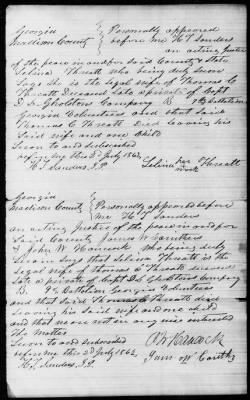 Georgia } Personally appeared
Madison County } before me H J Sanders
an acting Justice
of the peace in and for said County & State
Selina Threatt who being duly sworn
says she is the legal wife of Thomas C
Threatt Deceased late a private of Capt
D S Gholston Company B 9th Battalion
Georgia Volunteers and that said
Thomas C Threatt Died leaving his
said wife and one Child
Sworn to and subscribed
before me this 2d July 1862
H J Sanders, J.P. Selina her Threatt
mark
Georgia } Personally appeared before
Madison County } me H J Sanders
an acting Justice of the peace in and for
said County James W
& John W who being duly
sworn says that Selina Threatt is the
legal wife of Thomas C Threatt deceased
late a private of Capt D S Gholston Company
B 9th Battalion Georgia Volunteers
and that said Thomas C Threatt died
leaving his said wife and one child
and that
the matter
Sworn to and subscribed
before me this 2d July 1862
H J Sanders, J.P.